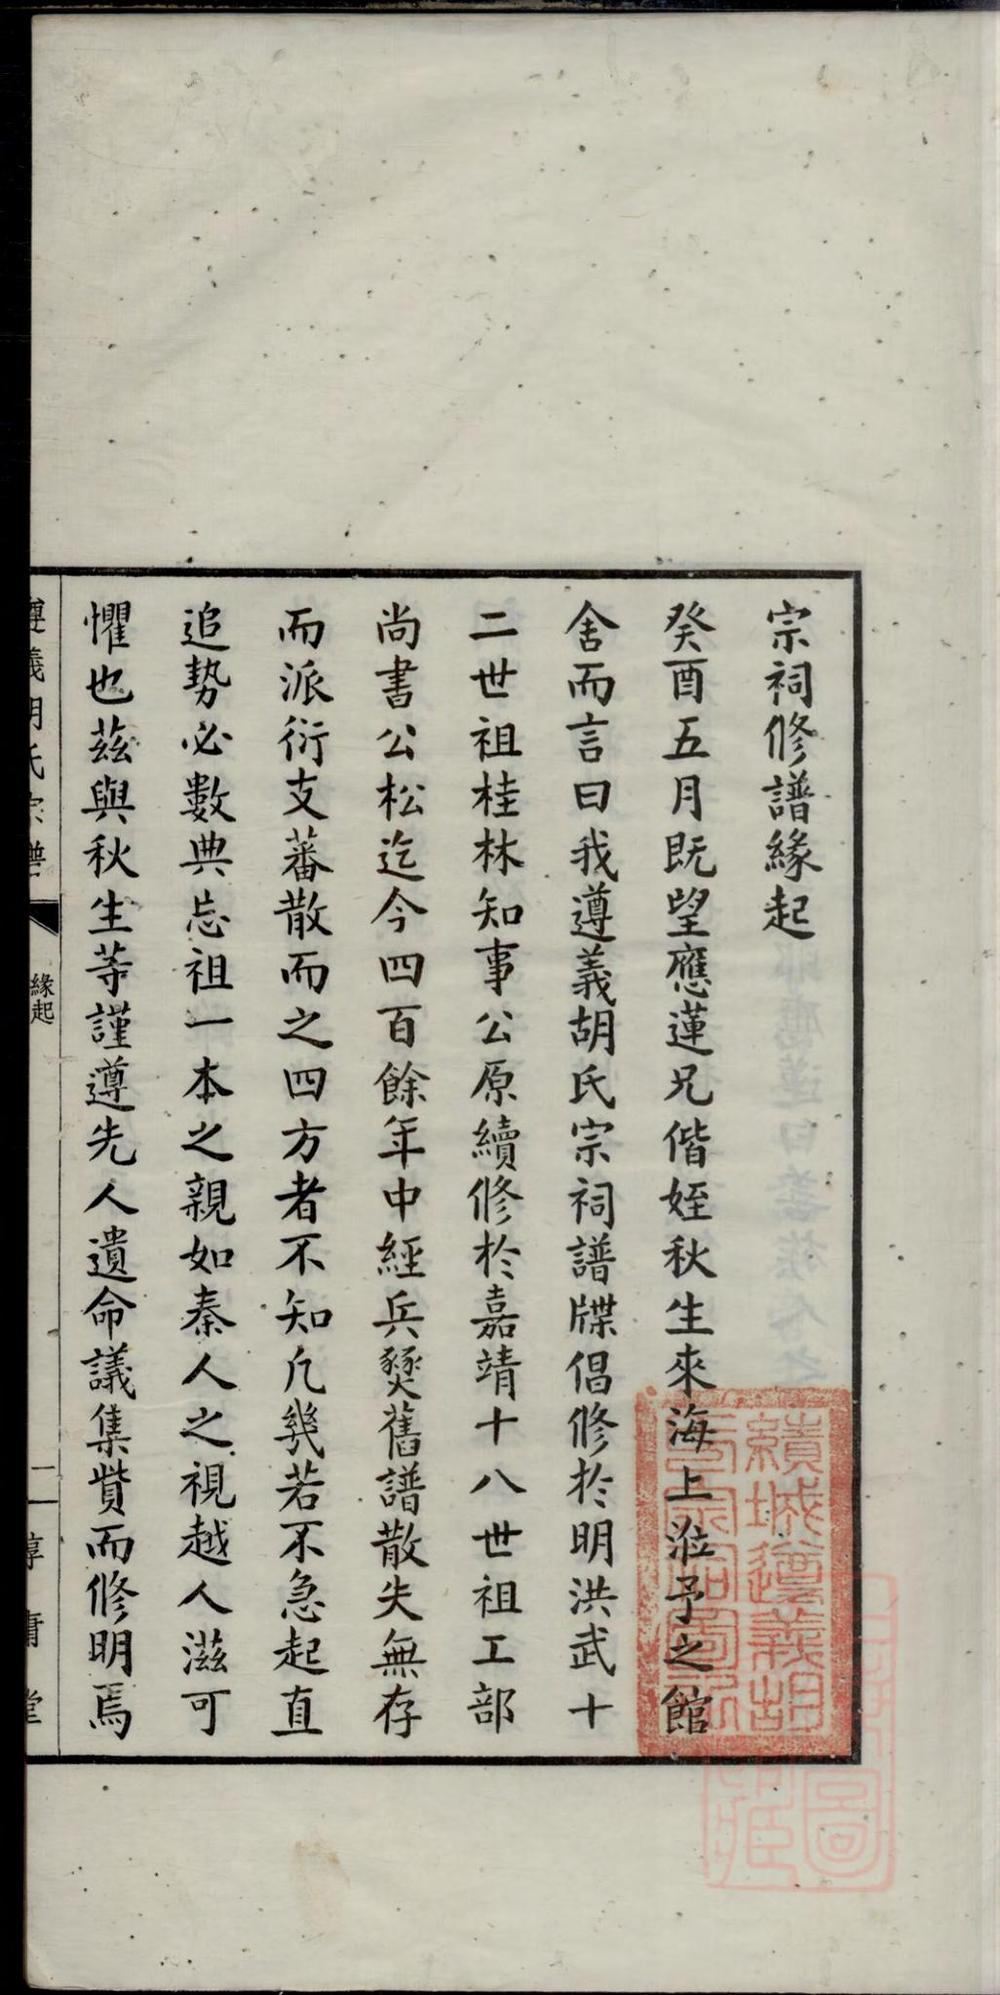 宗祠修譜緣起
癸酉五月既望應蓮兄偕姪秋生來海上涖予之館
舍而言曰我遵義胡氏宗祠譜牒倡修於明洪武十
二世祖桂林知事公原續修於嘉靖十八世祖工部
尚書公松迄今四百餘年中經兵燹舊譜散失無存
而派衍支蕃散而之四方者不知凡幾若不急起直
追勢必數典忘祖一本之親如秦人之視越人滋可
懼也茲與秋生等謹遵先人遺命議集貲而修明焉
遵義胡氏宗譜
緣起
二
惇庸堂
績城遵義胡